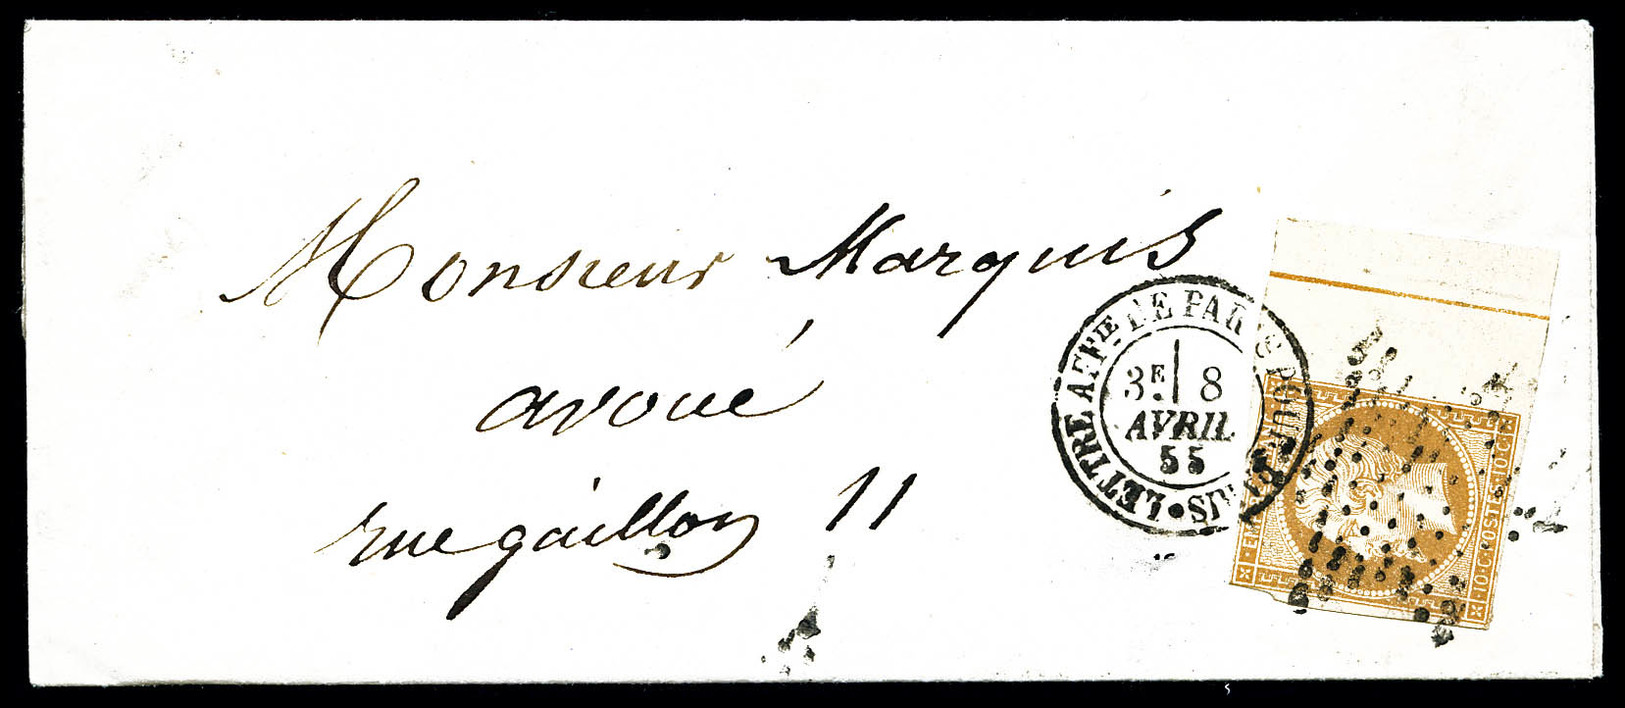 Monsieur Marquis
avoué
rue gaillon 11
LETTRE AFFIE. DE PARIS POUR PARIS
3E. 8
AVRIL
55
10·C·POSTES·10·C